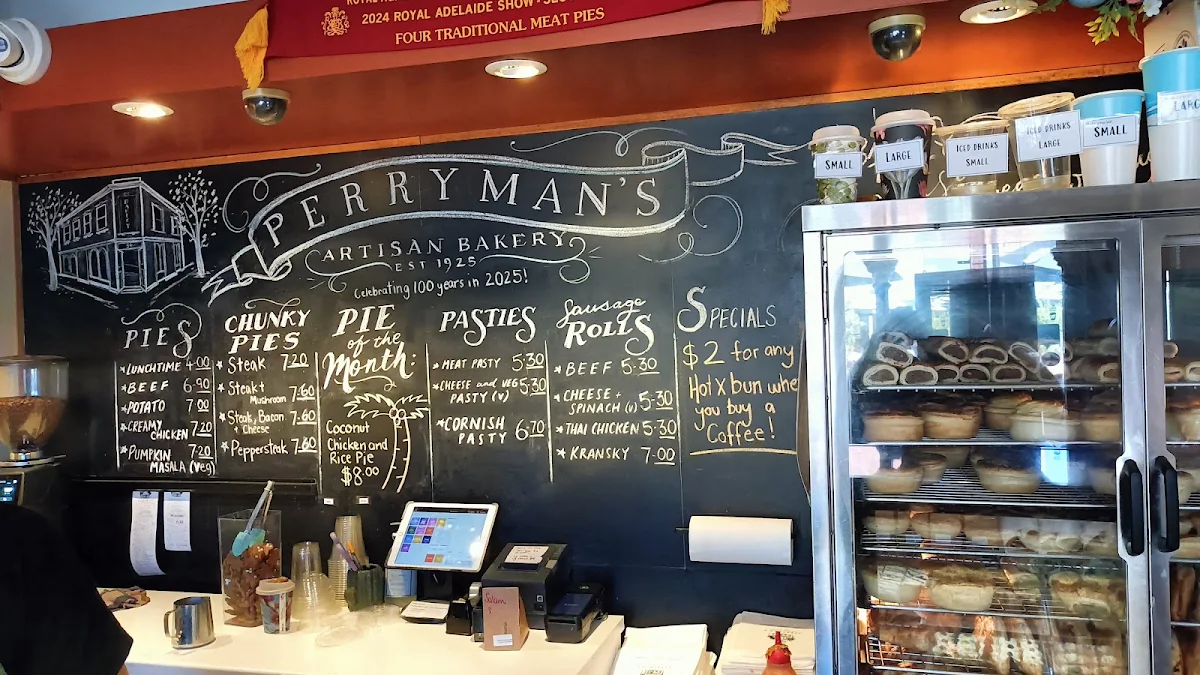 2024 ROYAL ADELAIDE SHOW
FOUR TRADITIONAL MEAT PIES
PERRYMAN'S
ARTISAN BAKERY
EST 1925
Celebrating 100 years in 2025!
PIES
* LUNCHTIME 4.00
* BEEF 6.90
* POTATO 7.00
* CREAMY
CHICKEN 7.20
* PUMPKIN 7.20
MASALA (Veg)
CHUNKY
PIES
* Steak 7.20
* Steak +
Mushroom 7.60
* Steak, Bacon 7.60
+ Cheese
* Peppersteak 7.60
PIE
of the
Month:
Coconut
Chicken and
Rice Pie
$8.00
PASTIES
* MEAT PASTY 5.30
* CHEESE and VEG 5.30
PASTY (v)
* CORNISH
PASTY 6.70
Sausage
ROLLS
* BEEF 5.30
* CHEESE +
SPINACH (v) 5.30
* THAI CHICKEN 5.30
* KRANSKY 7.00
SPECIALS
$2 for any
Hot x bun whe
you buy a
Coffee!
SMALL
LARGE
ICED DRINKS
SMALL
ICED DRINKS
LARGE
SMALL
LARG